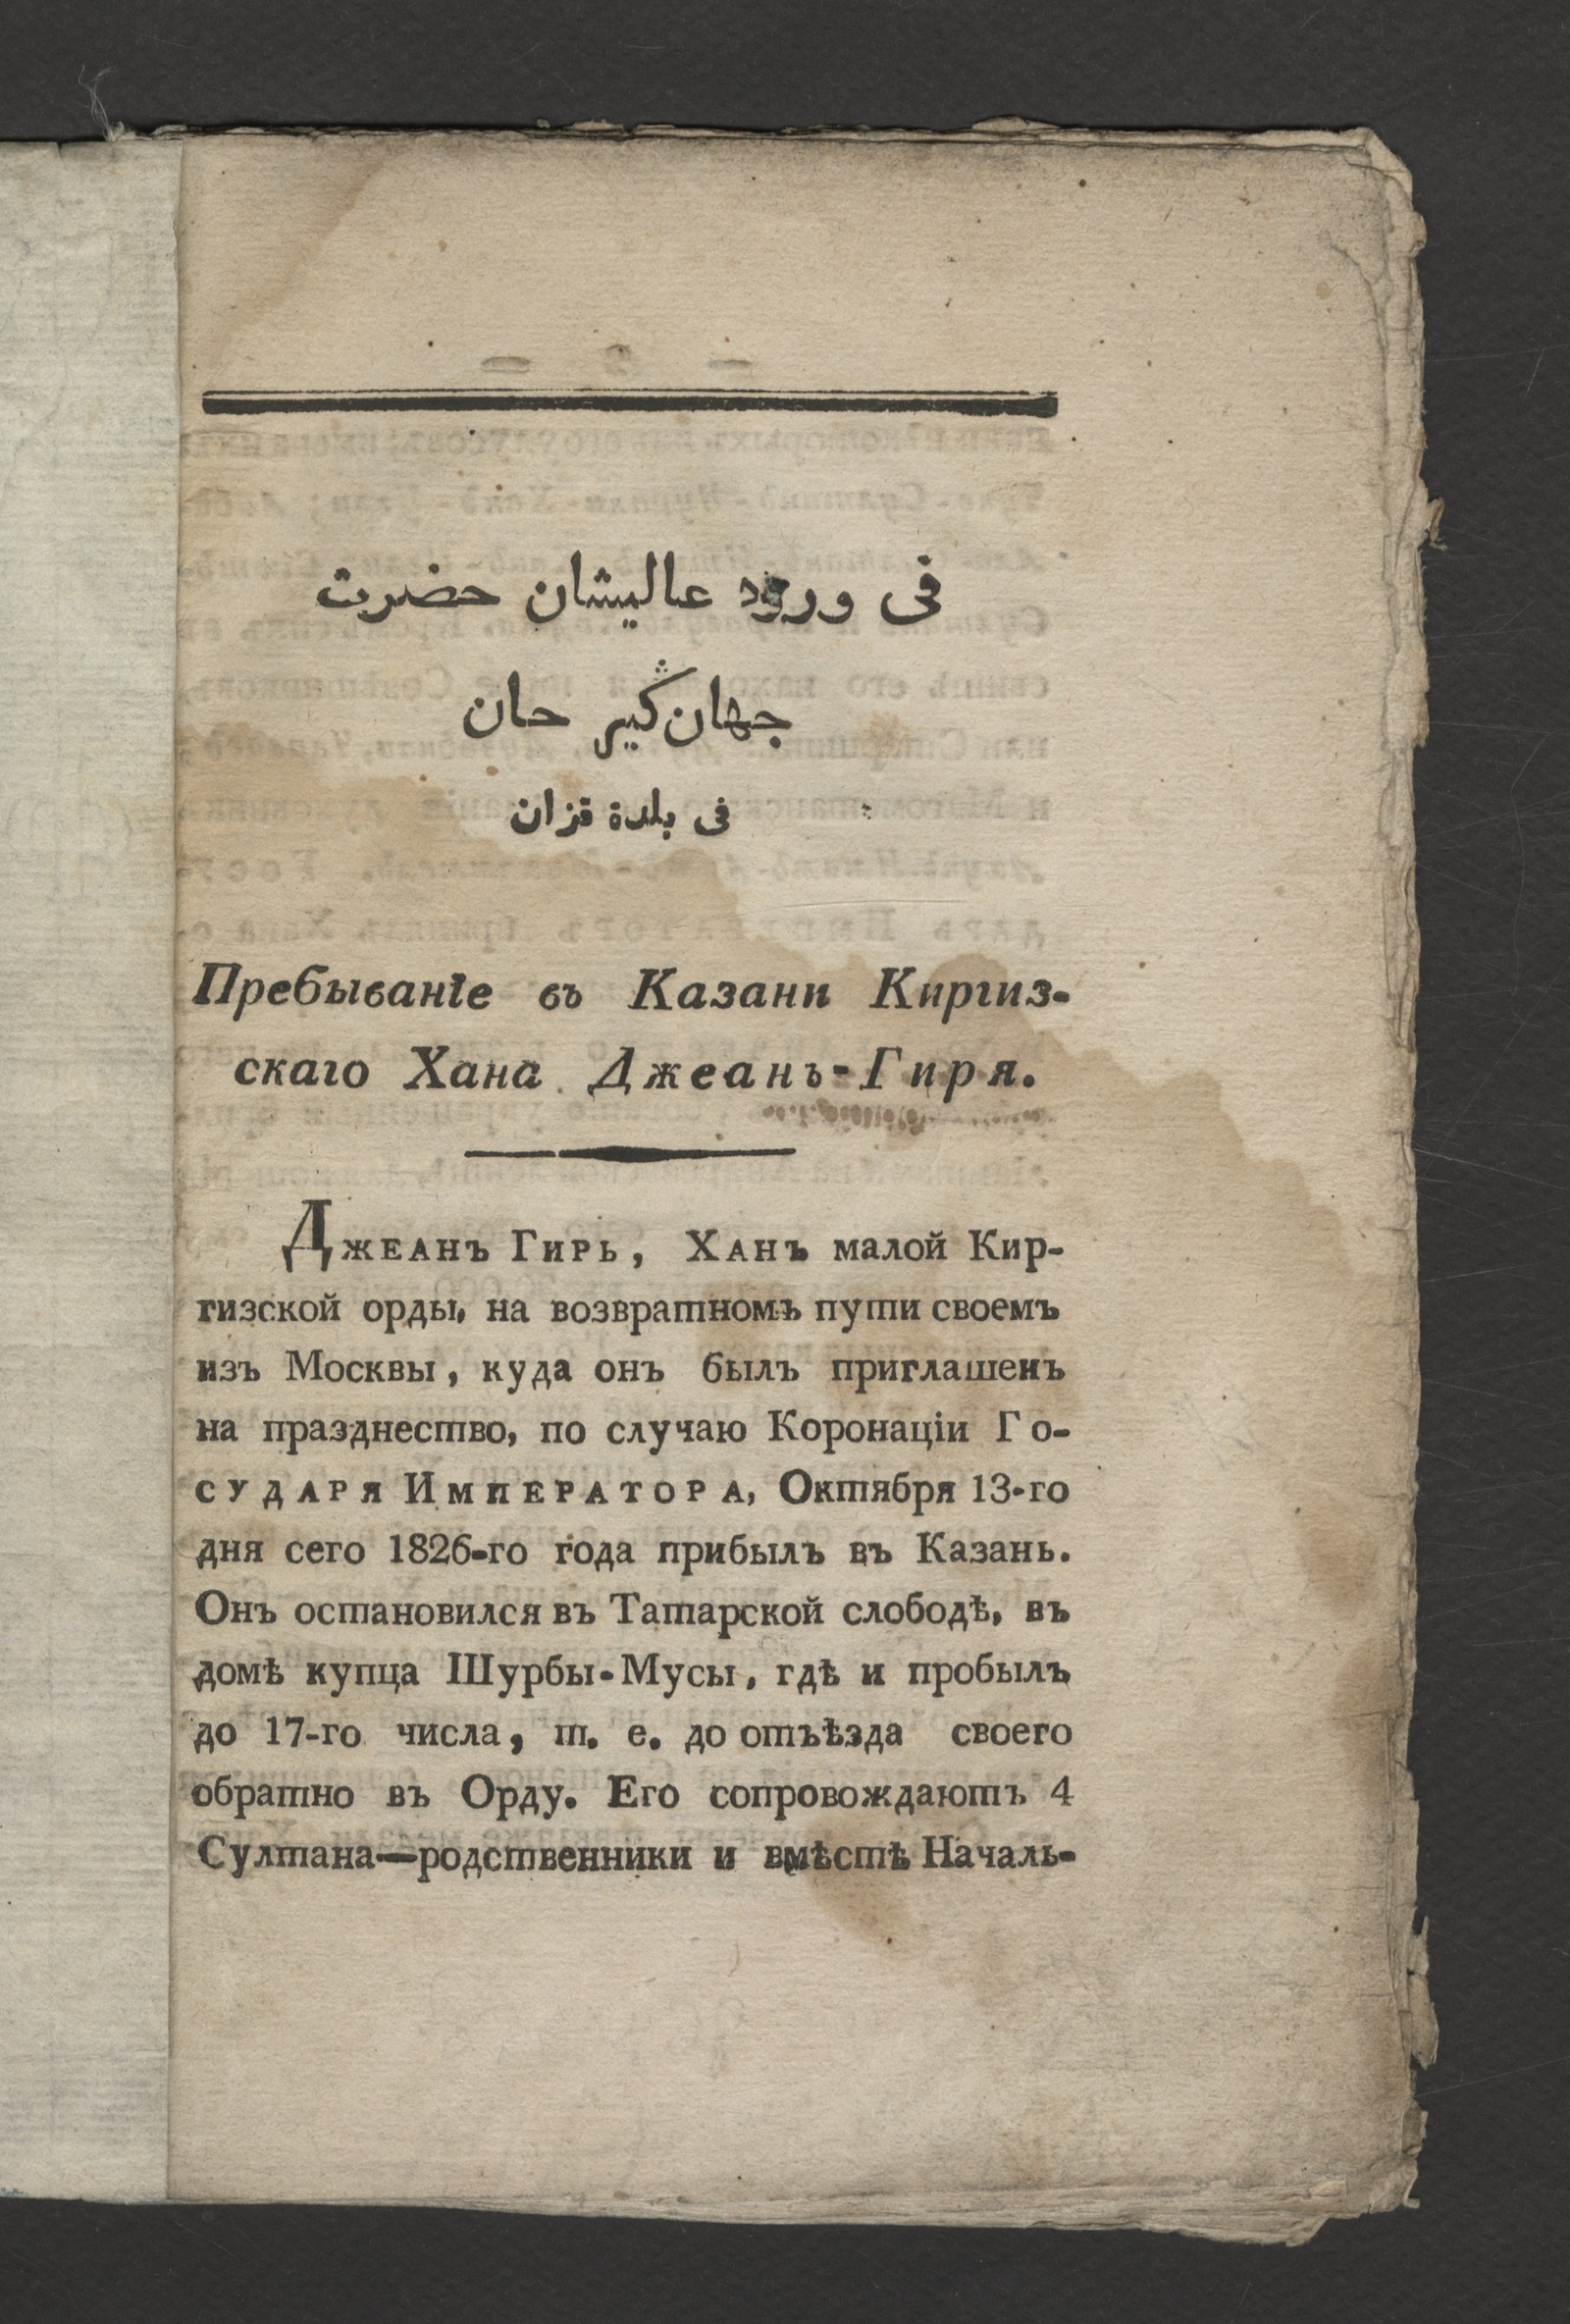 فى ورود عاليشان حضرت
جهان ڭير حان
فى بلدة قزان
Пребыванїе въ Казани Киргиз-
скаго Хана Джеанъ-Гиря.
Джеанъ Гирь, Ханъ малой Кир-
гизской орды, на возвратномъ пути своемъ
изъ Москвы, куда онъ былъ приглашенъ
на празднество, по случаю Коронаціи Го-
сударя Императора, Октября 13-го
дня сего 1826-го года прибылъ въ Казань.
Онъ остановился въ Татарской слободѣ, въ
домѣ купца Шурбы-Мусы, гдѣ и пробылъ
до 17-го числа, т. е. до отъѣзда своего
обратно въ Орду. Его сопровождаютъ 4
Султана—родственники и вмѣстѣ Началь-